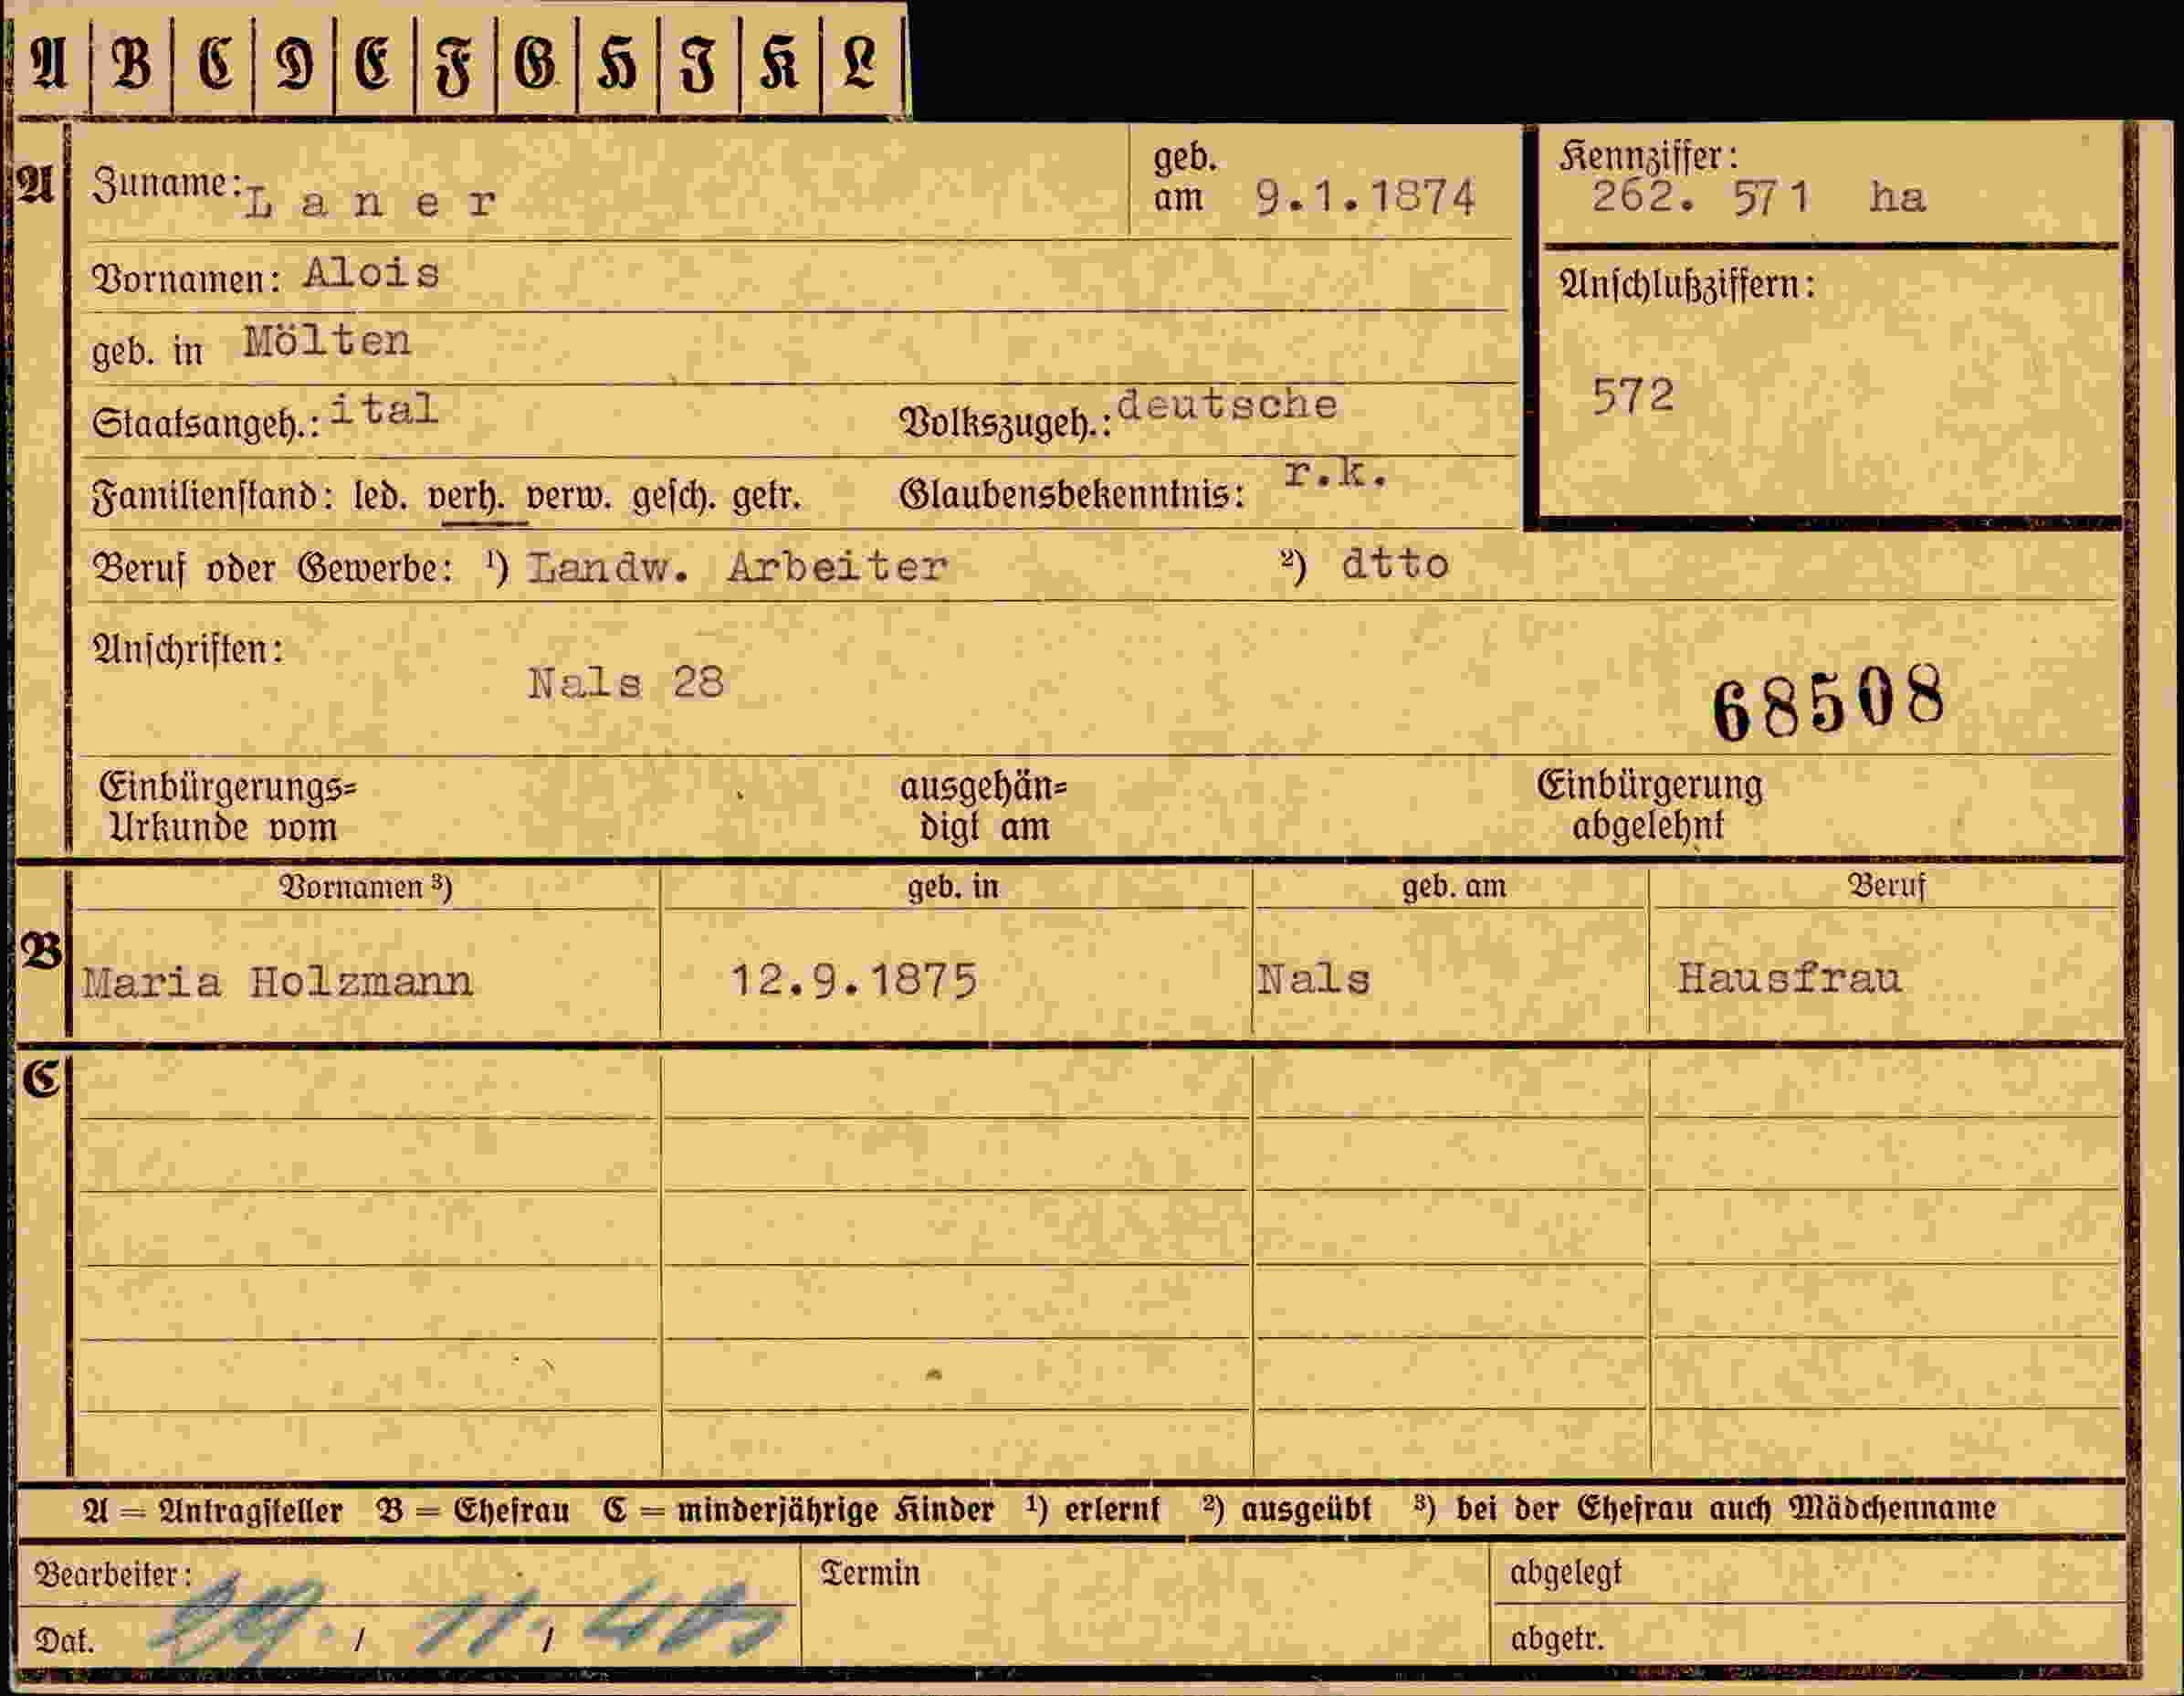 A B C D E F G H I K L
A Zuname: Laner geb. am 9.1.1874 Kennziffer: 262. 571 ha
Vornamen: Alois Anschlußziffern:
geb. in Mölten 572
Staatsangeh.: ital Volkszugeh.: deutsche
Familienstand: led. verh. verw. gesch. getr. Glaubensbekenntnis: r.k.
Beruf oder Gewerbe: ¹) Landw. Arbeiter ²) dtto
Anschriften:
Nals 28
68508
Einbürgerungs= ausgehän= Einbürgerung
Urkunde vom digt am abgelehnt
Vornamen ³) geb. in geb. am Beruf
B
Maria Holzmann 12.9.1875 Nals Hausfrau
C
A = Antragsteller B = Ehefrau C = minderjährige Kinder ¹) erlernt ²) ausgeübt ³) bei der Ehefrau auch Mädchenname
Bearbeiter: Termin abgelegt
Dat. 29. / 11. / abgetr.